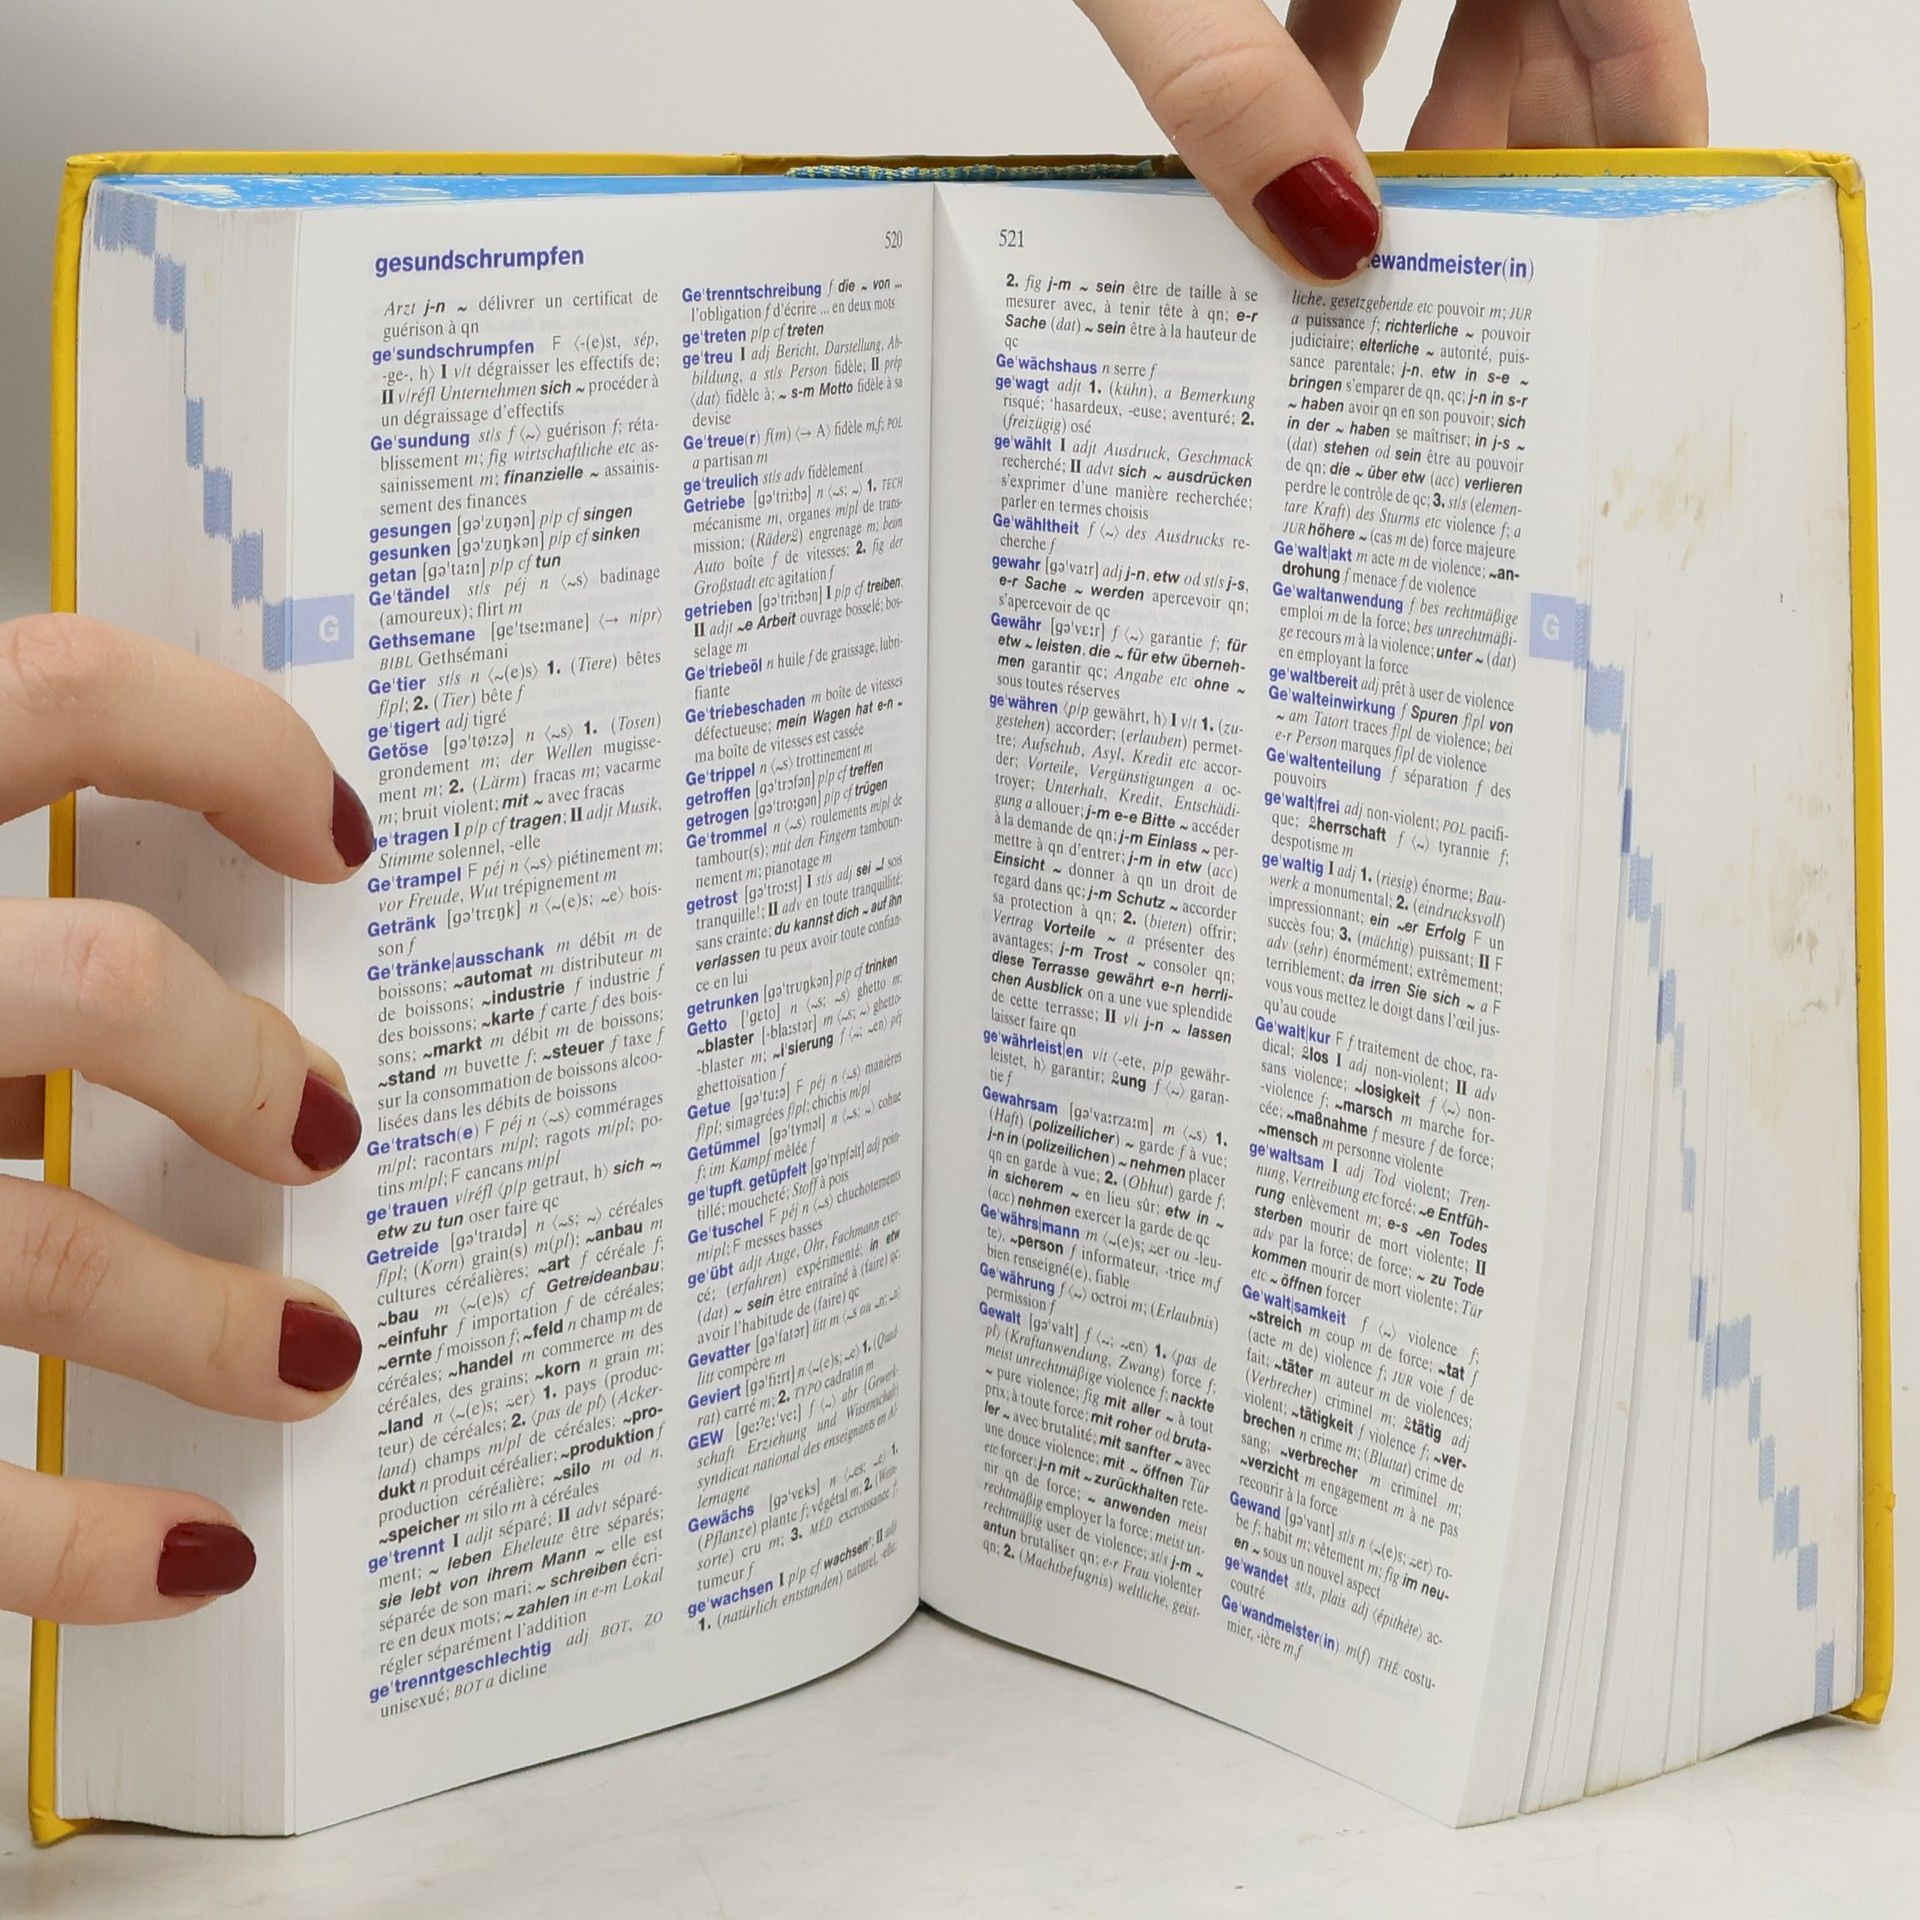 gesundschrumpfen
520
Arzt j-n ~ délivrer un certificat de
guérison à qn
ge'sundschrumpfen F ⟨-(e)st, sép,
-ge-, h⟩ I v/t dégraisser les effectifs de;
II v/réfl Unternehmen sich ~ procéder à
un dégraissage d'effectifs
Ge'sundung st/s f ⟨~⟩ guérison f; réta-
blissement m; fig wirtschaftliche etc as-
sainissement m; finanzielle ~ assainis-
sement des finances
gesungen [gə'zuŋən] p/p cf singen
gesunken [gə'zuŋkən] p/p cf sinken
getan [gə'taːn] p/p cf tun
Ge'tändel st/s péj n ⟨~s⟩ badinage
(amoureux); flirt m
Gethsemane [ge'tseːmane] ⟨→ n/pr⟩
BIBL Gethsémani
Ge'tier st/s n ⟨~(e)s⟩ 1. (Tiere) bêtes
f/pl; 2. (Tier) bête f
ge'tigert adj tigré
Getöse [gə'tøːzə] n ⟨~s⟩ 1. (Tosen)
grondement m; der Wellen mugisse-
ment m; 2. (Lärm) fracas m; vacarme
m; bruit violent; mit ~ avec fracas
ge'tragen I p/p cf tragen; II adjt Musik,
Stimme solennel, -elle
Ge'trampel F péj n ⟨~s⟩ piétinement m;
vor Freude, Wut trépignement m
Getränk [gə'trɛŋk] n ⟨~(e)s; ~e⟩ bois-
son f
Ge'tränke|ausschank m débit m de
boissons; ~automat m distributeur m
de boissons; ~industrie f industrie f
des boissons; ~karte f carte f des bois-
sons; ~markt m débit m de boissons;
~stand m buvette f; ~steuer f taxe f
sur la consommation de boissons alcoo-
lisées dans les débits de boissons
Ge'tratsch(e) F péj n ⟨~s⟩ commérages
m/pl; racontars m/pl; ragots m/pl; po-
tins m/pl; F cancans m/pl
ge'trauen v/réfl ⟨p/p getraut, h⟩ sich ~,
etw zu tun oser faire qc
Getreide [gə'traɪdə] n ⟨~s; ~⟩ céréales
f/pl; (Korn) grain(s) m(pl); ~anbau m
cultures céréalières; ~art f céréale f;
~bau m ⟨~(e)s⟩ cf Getreideanbau;
~einfuhr f importation f de céréales;
~ernte f moisson f; ~feld n champ m de
céréales; ~handel m commerce m des
céréales, des grains; ~korn n grain m;
~land n ⟨~(e)s; ~er⟩ 1. pays (produc-
teur) de céréales; 2. ⟨pas de pl⟩ (Acker-
land) champs m/pl de céréales; ~pro-
dukt n produit céréalier; ~produktion f
production céréalière; ~silo m od n,
~speicher m silo m à céréales
ge'trennt I adjt séparé; II advt séparé-
ment; ~ leben Eheleute être séparés;
sie lebt von ihrem Mann ~ elle est
séparée de son mari; ~ schreiben écri-
re en deux mots; ~ zahlen in e-m Lokal
régler séparément l'addition
ge'trenntgeschlechtig adj BOT, ZO
unisexué; BOT a dicline
Ge'trenntschreibung f die ~ von ...
l'obligation f d'écrire ... en deux mots
ge'treten p/p cf treten
ge'treu I adj Bericht, Darstellung, Ab-
bildung, a st/s Person fidèle; II prép
⟨dat⟩ fidèle à; ~ s-m Motto fidèle à sa
devise
Ge'treue(r) f(m) ⟨→ A⟩ fidèle m,f; POL
a partisan m
ge'treulich st/s adv fidèlement
Getriebe [gə'triːbə] n ⟨~s; ~⟩ 1. TECH
mécanisme m, organes m/pl de trans-
mission; (Räder2) engrenage m; beim
Auto boîte f de vitesses; 2. fig der
Großstadt etc agitation f
getrieben [gə'triːbən] I p/p cf treiben;
II adjt ~e Arbeit ouvrage bosselé; bos-
selage m
Ge'triebeöl n huile f de graissage, lubri-
fiante
Ge'triebeschaden m boîte de vitesses
défectueuse; mein Wagen hat e-n ~
ma boîte de vitesses est cassée
Ge'trippel n ⟨~s⟩ trottinement m
getroffen [gə'trɔfən] p/p cf treffen
getrogen [gə'troːgən] p/p cf trügen
Ge'trommel n ⟨~s⟩ roulements m/pl de
tambour(s); mit den Fingern tambouri-
nement m; pianotage m
getrost [gə'troːst] I st/s adj sei ~! sois
tranquille!; II adv en toute tranquillité;
sans crainte; du kannst dich ~ auf ihn
verlassen tu peux avoir toute confian-
ce en lui
getrunken [gə'truŋkən] p/p cf trinken
Getto ['gɛto] n ⟨~s; ~s⟩ ghetto m;
~blaster [-blaːstər] m ⟨~s; ~⟩ ghetto-
-blaster m; ~i'sierung f ⟨~; ~en⟩ péj
ghettoïsation f
Getue [gə'tuːə] F péj n ⟨~s⟩ manières
f/pl; simagrées f/pl; chichis m/pl
Getümmel [gə'tʏməl] n ⟨~s; ~⟩ cohue
f; im Kampf mêlée f
ge'tupft, getüpfelt [gə'tʏpfəlt] adj poin-
tillé; moucheté; Stoff à pois
Ge'tuschel F péj n ⟨~s⟩ chuchotements
m/pl; F messes basses
ge'übt adjt Auge, Ohr, Fachmann exer-
cé; (erfahren) expérimenté; in etw
(dat) ~ sein être entraîné à (faire) qc;
avoir l'habitude de (faire) qc
Gevatter [gə'fatər] litt m ⟨~s ou ~n; ~n⟩
litt compère m
Geviert [gə'fiːrt] n ⟨~(e)s; ~e⟩ 1. (Quad-
rat) carré m; 2. TYPO cadratin m
GEW [geːʔeː'veː] f ⟨~⟩ abr (Gewerk-
schaft Erziehung und Wissenschaft)
syndicat national des enseignants en Al-
lemagne
Gewächs [gə'vɛks] n ⟨~es; ~e⟩ 1.
(Pflanze) plante f; végétal m; 2. (Wein-
sorte) cru m; 3. MÉD excroissance f;
tumeur f
ge'wachsen I p/p cf wachsen¹; II adjt
1. (natürlich entstanden) naturel, -elle;
G
521
ewandmeister(in)
2. fig j-m ~ sein être de taille à se
mesurer avec, à tenir tête à qn; e-r
Sache (dat) ~ sein être à la hauteur de
qc
Ge'wächshaus n serre f
ge'wagt adjt 1. (kühn), a Bemerkung
risqué; 'hasardeux, -euse; aventuré; 2.
(freizügig) osé
ge'wählt I adjt Ausdruck, Geschmack
recherché; II advt sich ~ ausdrücken
s'exprimer d'une manière recherchée;
parler en termes choisis
Ge'wähltheit f ⟨~⟩ des Ausdrucks re-
cherche f
gewahr [gə'vaːr] adj j-n, etw od st/s j-s,
e-r Sache ~ werden apercevoir qn;
s'apercevoir de qc
Gewähr [gə'vɛːr] f ⟨~⟩ garantie f; für
etw ~ leisten, die ~ für etw überneh-
men garantir qc; Angabe etc ohne ~
sous toutes réserves
ge'währen ⟨p/p gewährt, h⟩ I v/t 1. (zu-
gestehen) accorder; (erlauben) permet-
tre; Aufschub, Asyl, Kredit etc accor-
der; Vorteile, Vergünstigungen a oc-
troyer; Unterhalt, Kredit, Entschädi-
gung a allouer; j-m e-e Bitte ~ accéder
à la demande de qn; j-m Einlass ~ per-
mettre à qn d'entrer; j-m in etw (acc)
Einsicht ~ donner à qn un droit de
regard dans qc; j-m Schutz ~ accorder
sa protection à qn; 2. (bieten) offrir;
Vertrag Vorteile ~ a présenter des
avantages; j-m Trost ~ consoler qn;
diese Terrasse gewährt e-n herrli-
chen Ausblick on a une vue splendide
de cette terrasse; II v/i j-n ~ lassen
laisser faire qn
ge'währleist|en v/t ⟨-ete, p/p gewähr-
leistet, h⟩ garantir; 2ung f ⟨~⟩ garan-
tie f
Gewahrsam [gə'vaːrzaːm] m ⟨~s⟩ 1.
(Haft) (polizeilicher) ~ garde f à vue;
j-n in (polizeilichen) ~ nehmen placer
qn en garde à vue; 2. (Obhut) garde f;
in sicherem ~ en lieu sûr; etw in ~
(acc) nehmen exercer la garde de qc
Ge'währs|mann m ⟨~(e)s; ~er ou -leu-
te⟩, ~person f informateur, -trice m,f
bien renseigné(e), fiable
Ge'währung f ⟨~⟩ octroi m; (Erlaubnis)
permission f
Gewalt [gə'valt] f ⟨~; ~en⟩ 1. ⟨pas de
pl⟩ (Kraftanwendung, Zwang) force f;
meist unrechtmäßige violence f; nackte
~ pure violence; fig mit aller ~ à tout
prix; à toute force; mit roher od bruta-
ler ~ avec brutalité; mit sanfter ~ avec
une douce violence; mit ~ öffnen Tür
etc forcer; j-n mit ~ zurückhalten rete-
nir qn de force; ~ anwenden meist
rechtmäßig employer la force; meist un-
rechtmäßig user de violence; st/s j-m ~
antun brutaliser qn; e-r Frau violenter
qn; 2. (Machtbefugnis) weltliche, geist-
liche, gesetzgebende etc pouvoir m; JUR
a puissance f; richterliche ~ pouvoir
judiciaire; elterliche ~ autorité, puis-
sance parentale; j-n, etw in s-e ~
bringen s'emparer de qn, qc; j-n in s-r
~ haben avoir qn en son pouvoir; sich
in der ~ haben se maîtriser; in j-s ~
(dat) stehen od sein être au pouvoir
de qn; die ~ über etw (acc) verlieren
perdre le contrôle de qc; 3. st/s (elemen-
tare Kraft) des Sturms etc violence f; a
JUR höhere ~ (cas m de) force majeure
Ge'walt|akt m acte m de violence; ~an-
drohung f menace f de violence
Ge'waltanwendung f bes rechtmäßige
emploi m de la force; bes unrechtmäßi-
ge recours m à la violence; unter ~ (dat)
en employant la force
ge'waltbereit adj prêt à user de violence
Ge'walteinwirkung f Spuren f/pl von
~ am Tatort traces f/pl de violence; bei
e-r Person marques f/pl de violence
Ge'waltenteilung f séparation f des
pouvoirs
ge'walt|frei adj non-violent; POL pacifi-
que; 2herrschaft f ⟨~⟩ tyrannie f;
despotisme m
ge'waltig I adj 1. (riesig) énorme; Bau-
werk a monumental; 2. (eindrucksvoll)
impressionnant; ein ~er Erfolg F un
succès fou; 3. (mächtig) puissant; II F
adv (sehr) énormément; extrêmement;
terriblement; da irren Sie sich ~ a F
vous vous mettez le doigt dans l'œil jus-
qu'au coude
Ge'walt|kur F f traitement de choc, ra-
dical; 2los I adj non-violent; II adv
sans violence; ~losigkeit f ⟨~⟩ non-
-violence f; ~marsch m marche for-
cée; ~maßnahme f mesure f de force;
~mensch m personne violente
ge'waltsam I adj Tod violent; Tren-
nung, Vertreibung etc forcé; ~e Entfüh-
rung enlèvement m; e-s ~en Todes
sterben mourir de mort violente; II
adv par la force; de force; ~ zu Tode
kommen mourir de mort violente; Tür
etc ~ öffnen forcer
Ge'walt|samkeit f ⟨~⟩ violence f;
~streich m coup m de force; ~tat f
(acte m de) violence f; JUR voie f de
fait; ~täter m auteur m de violences;
(Verbrecher) criminel m; 2tätig adj
violent; ~tätigkeit f violence f; ~ver-
brechen n crime m; (Bluttat) crime de
sang; ~verbrecher m criminel m;
~verzicht m engagement m à ne pas
recourir à la force
Gewand [gə'vant] st/s n ⟨~(e)s; ~er⟩ ro-
be f; habit m; vêtement m; fig im neu-
en ~ sous un nouvel aspect
ge'wandet st/s, plais adj ⟨épithète⟩ ac-
coutré
Ge'wandmeister(in) m(f) THÉ costu-
mier, -ière m,f
G